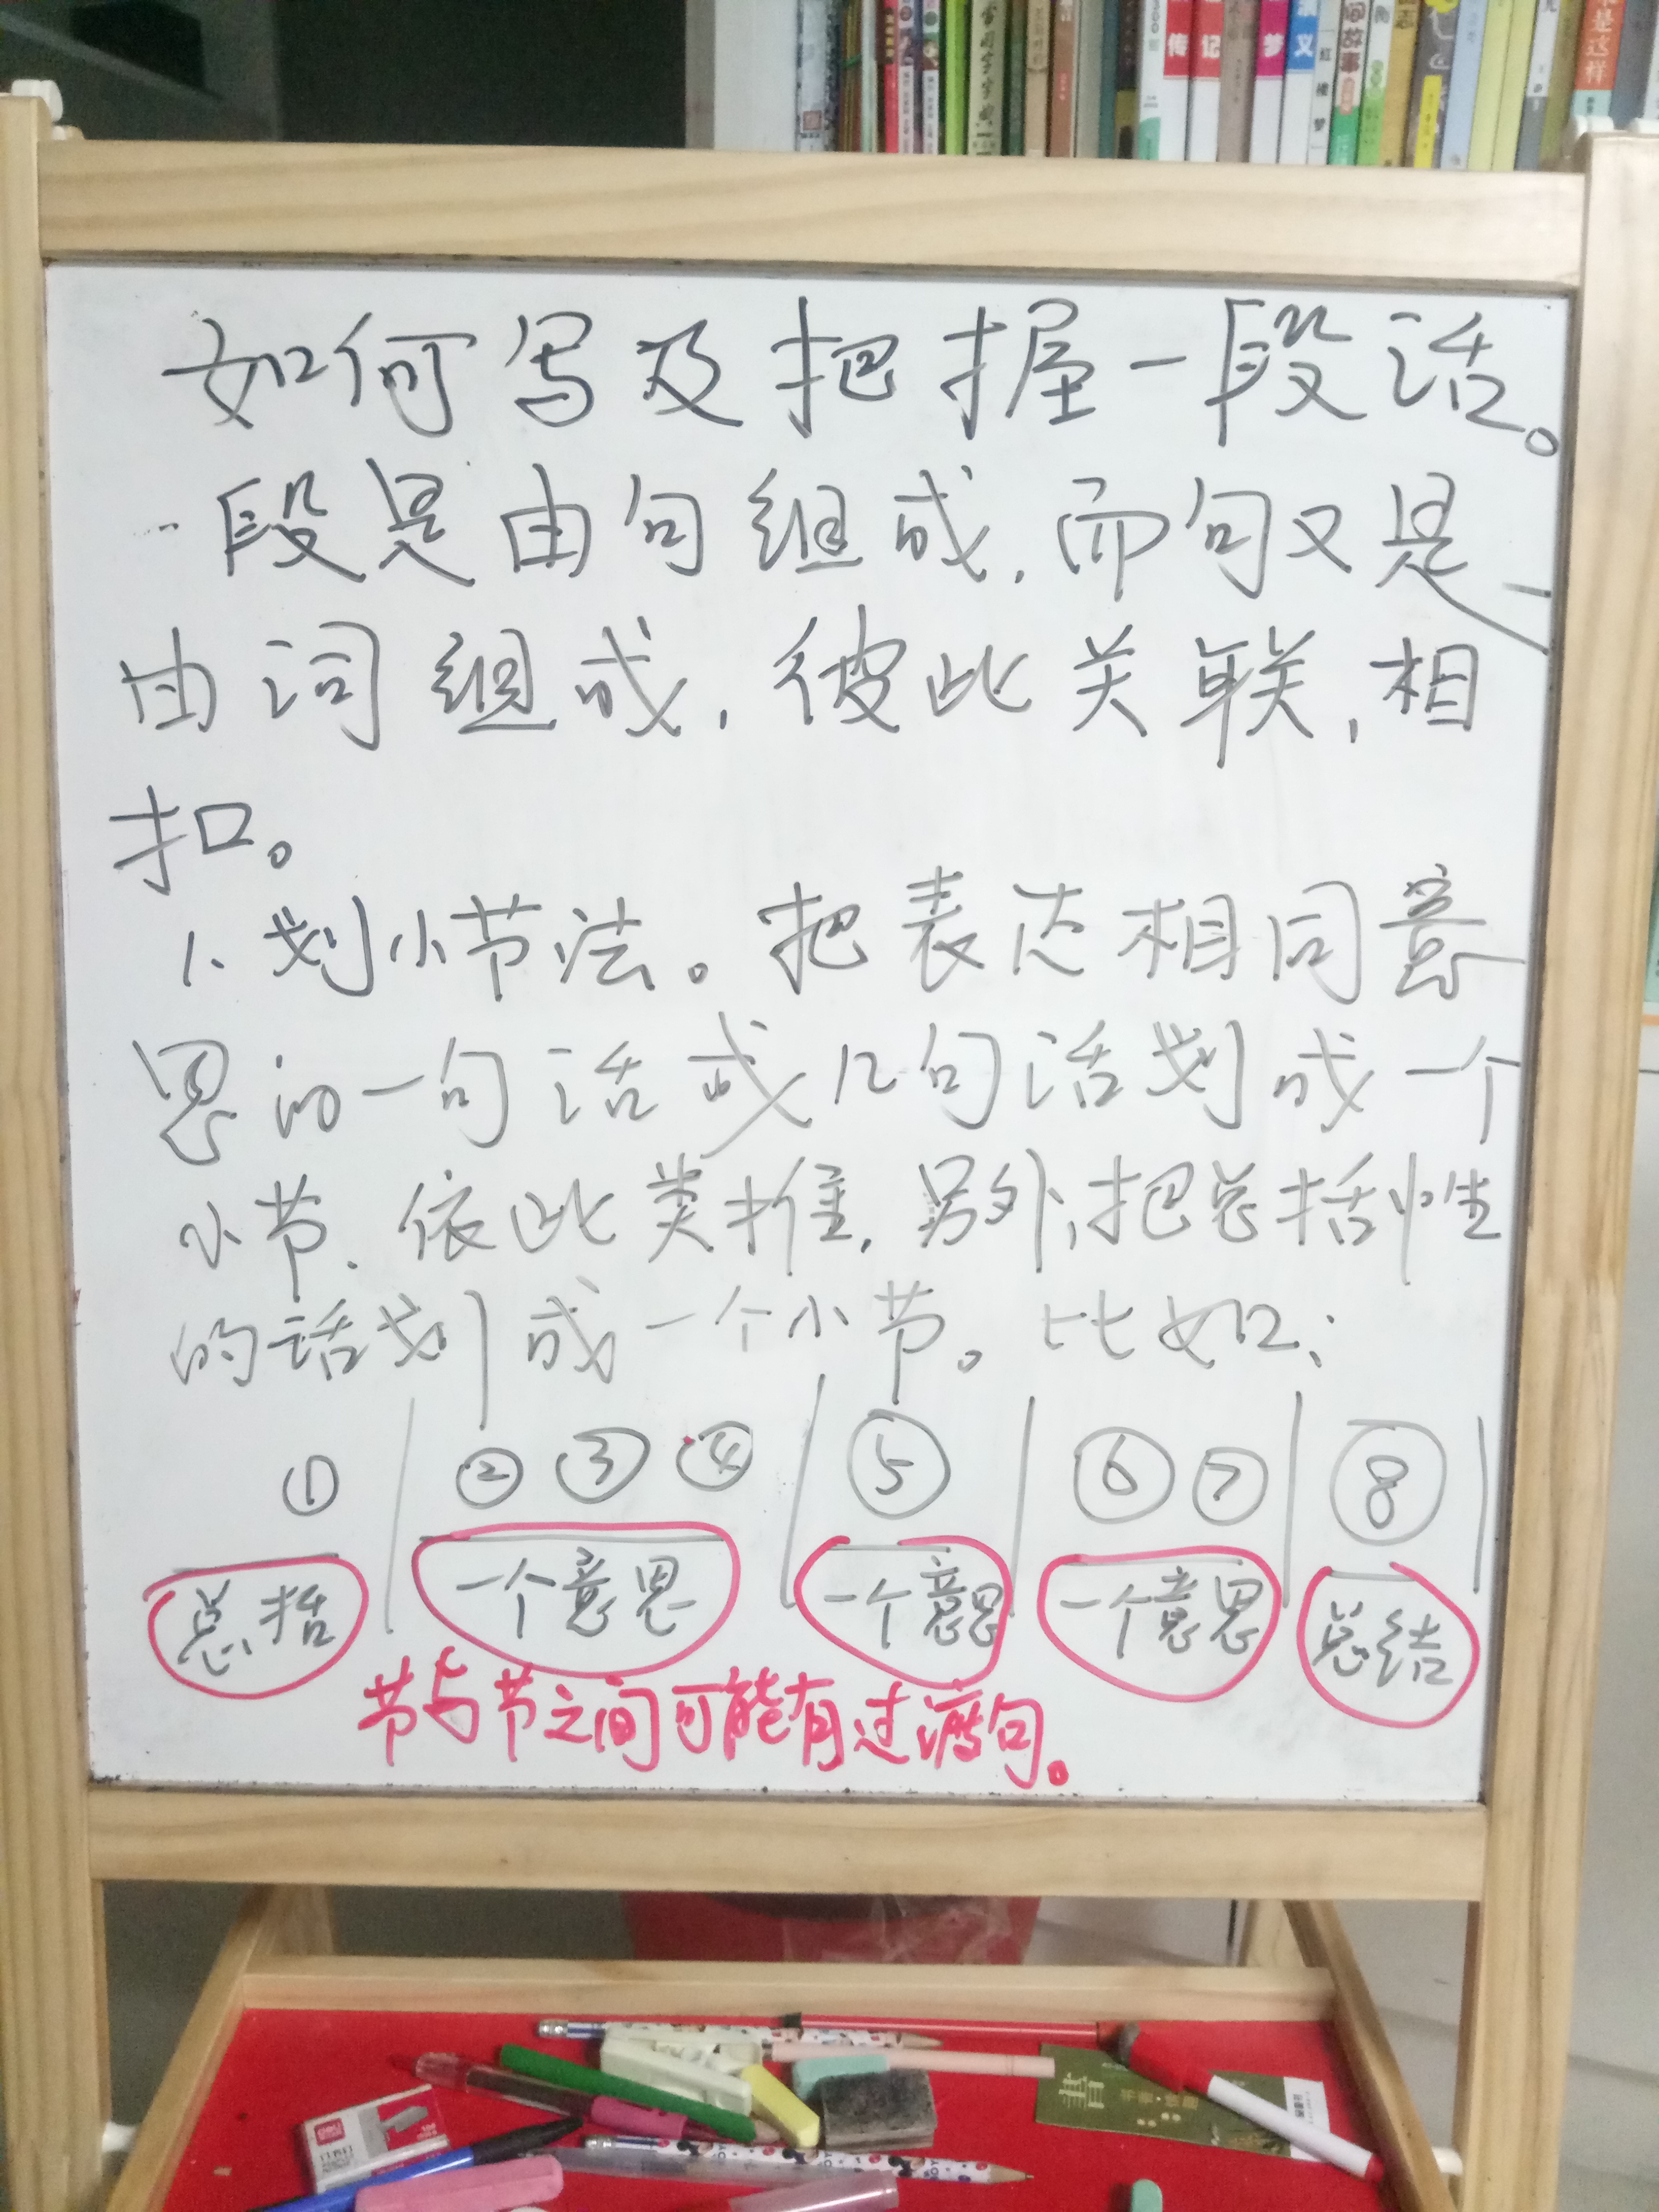 传
记
梦
义
红楼梦
间故事
是这样
如何写及把握一段话。
一段是由句组成,而句又是
由词组成,彼此关联,相
扣。
1、划小节法。把表达相同意
思的一句话或几句话划成一个
小节、依此类推,另外,把总括性
的话划成一个小节。比如:
① ② ③ ④ ⑤ ⑥ ⑦ ⑧
总括 一个意思 一个意思 一个意思 总结
节与节之间可能有过渡句。